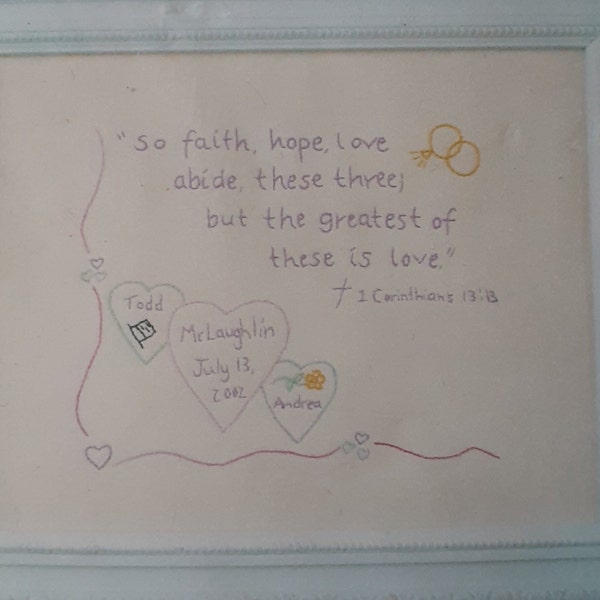 "So faith, hope, love
abide, these three;
but the greatest of
these is love."
1 Corinthians 13:13
Todd
McLaughlin
July 13,
2002
Andrea